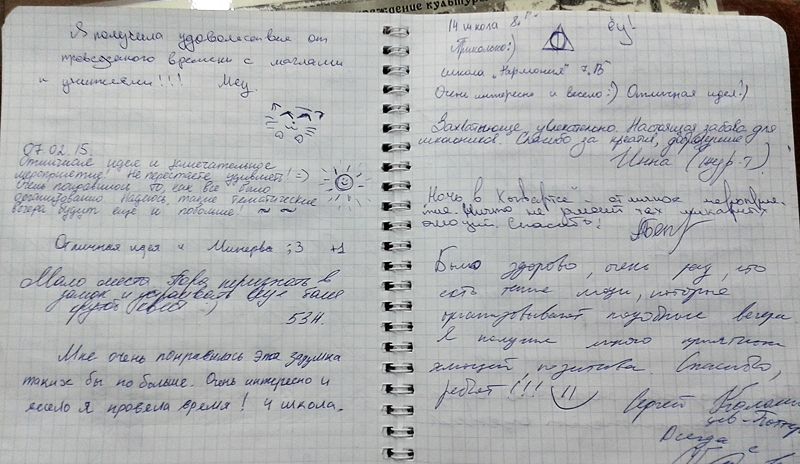 ждение культуры
Я получила удовольствие от
проведеного времени с маглами
и учителями!!! Мяу.
07.02.15.
Отличная идея и замечательное
мероприятие! Не переставайте удивлять! =)
Очень понравилось то, как все было
организовано. Надеюсь, такие тематические
вечера будут еще и побольше! ~ ~
Отличная идея и Минерва ;3 +1
Мало места. Пора переезжать в
замок и устраивать более
5ЗН.
Мне очень понравилась эта задумка
таких бы по больше. Очень интересно и
весело я провела время! 4 школа.
14 школа 8
Прикольно:)
школа „Гармония" 7
Очень интересно и весело:) Отличная идея!)
Захватывающе, увлекательно. Настоящая забава для
школьников. Спасибо за креатив,
Инна
Ночь в Хогвартсе - отличное мероприя-
тие. Ничто не тех
эмоций. Спасибо!
Было здорово, очень рад, что
есть такие люди, которые
организовывают подобные вечера.
Я получил много приятных
эмоций, позитива. Спасибо,
ребят!!!
Сергей
Всегда с